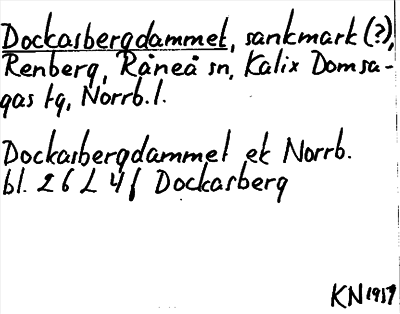 Dockasbergdammet, sankmark (?),
Renberg, Råneå sn, Kalix Domsa-
gas tg, Norrb.l.
Dockasbergdammet ek Norrb.
bl. 26 L 4 f Dockasberg
KN 1957